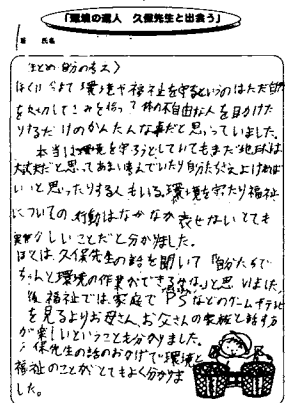 「環境の達人 久保先生と出会う」
氏名
(まとめ・自分の考え)
ぼくは今まで環境や福祉を守るというのはただ自然
を大切してごみを拾って体の不自由な人を目かけた
りするだけのかんたんな事だと思っていました。
本当は環境を守ろうとしていてもまだ地球は
大丈夫だと思ってあまい考えでいたり自分たちさえよければい
いと思ったりする人もいる。環境を守たり福祉
についての行動はなかなか表せないとても
しいことだと分かりました。
ぼくは、久保先生の話を聞いて「自分たちで
ちゃんと環境の作業ができるな」と思いました。
後福祉では、家庭でPSなどのゲームやテレビ
を見るよりお母さん、お父さんの家族と話す方
が楽しいということも分かりました。
久保先生の話のおかげで環境と
福祉のことがとてもよく分かりま
した。